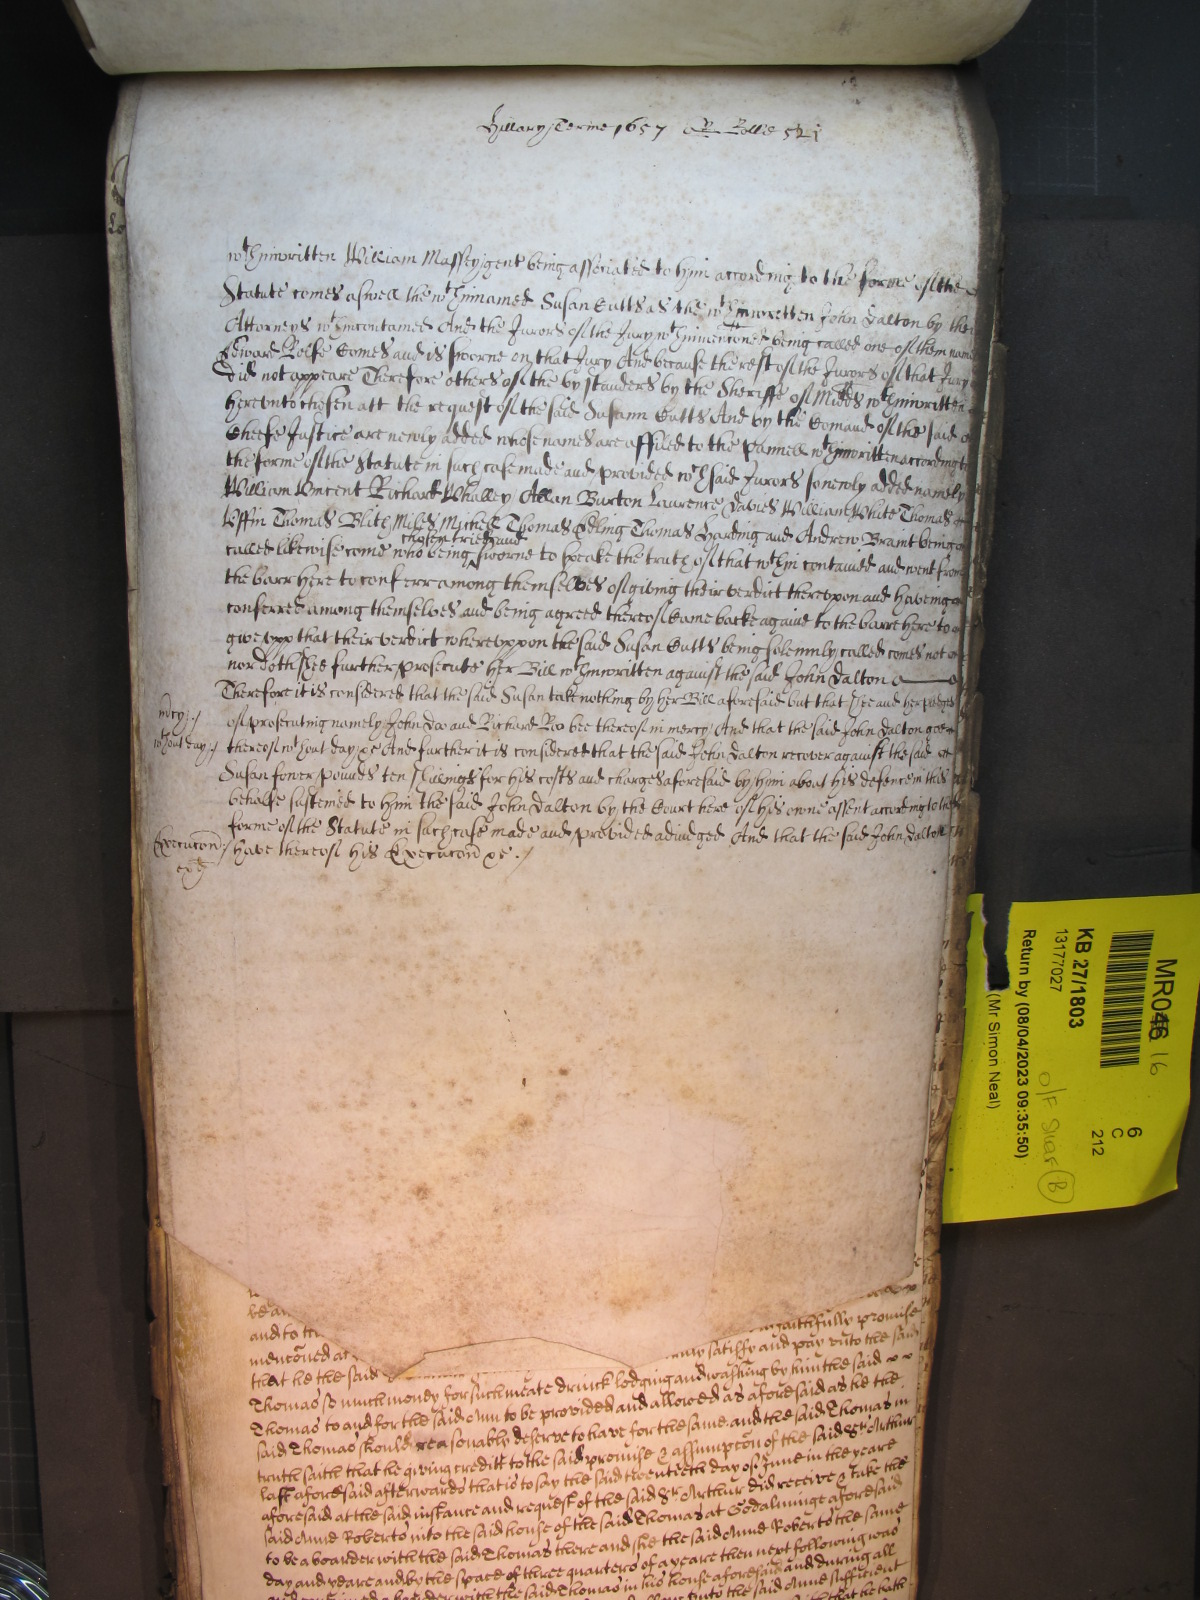 Hillary Terme 1657 Rolle 521
wthinwritten William Massey gent being assotiated to him according to the forme of the
Statute comes aswell the wthinnamed Susan Cutts as the wthinwritten John Dalton by the
Attorneys wthincontained And the Jurors of the Jury wthinmenconed being called one of them
Edward Rolfe Comes and is sworne on that Jury And because the rest of the Jurors of that Jury
did not appeare Therefore others of the by standers by the Sheriffe of Midds wthinwritten
hereunto chosen att the request of the said Susann Cutts And by the Comaud of the said
Cheefe Justice are newly added whose names are affiled to the Pannell wthinwritten according to
the forme of the Statute in such case made and provided wch said Jurors so newly added namely
William Vincent Richard Whalley Allan Burton Laurence Davies William White Thomas
Uffin Thomas Blith Miles Michell Thomas Edling Thomas Harding and Andrew Bramt being
chosen tried and
called likewise come who being sworne to speake the truth of that wthin contained and went from
the barr here to conferr among themselves of giving their verdict thereupon and haveing
conferred among themselves and being agreed thereof Came backe againe to the barre here to
give upp that their verdict whereuppon the said Susan Cutts being solemnly called comes not
nor doth shee further prosecute her Bill wthinwritten against the said John Dalton
Therefore it is considered that the said Susan take nothing by her Bill aforesaid but that shee and her pledges
mcy
of prosecuting namely John Doo and Richard Roo bee thereof in mercy And that the said John Dalton goe
wthout day
thereof wthout day &c And further it is considered that the said John Dalton recover against the said
Susan fower pounds ten shillings for his costs and charges aforesaid by him about his defence in this
behalfe susteined to him the said John Dalton by the Court here of his owne assent according to the
forme of the Statute in such case made and provided adiudged And that the said John Dalton
Execucon
have thereof his Execucon &c
and to
menconed
faithfully promise
that he the said
satisfy and pay unto the said
Thomas so much money for such meate drinck lodging and washing by him the said
Thomas to and for the said Ann to be provided and allowed as aforesaid as he the
said Thomas should reasonably deserve to have for the same and the said Thomas in
truth saith that he giving creditt to the said promise & assumpcon of the said Sr Arthur
last aforesaid afterwards that is to say the said twentieth day of June in the yeare
aforesaid at the said instance and request of the said Sr Arthur did receive & take the
said Anne Roberts into the said house of the said Thomas at Godalminge aforesaid
to be a boarder with the said Thomas there and she the said Anne Roberts the same
day and yeare and by the space of three quarters of a yeare then next following was
boarder with the said Thomas in his house aforesaid and during all
unto the said Anne sufficient
MR046 16
KB 27/1803
13177027
Return by (08/04/2023 09:35:50)
(Mr Simon Neal)
6
C
212
B